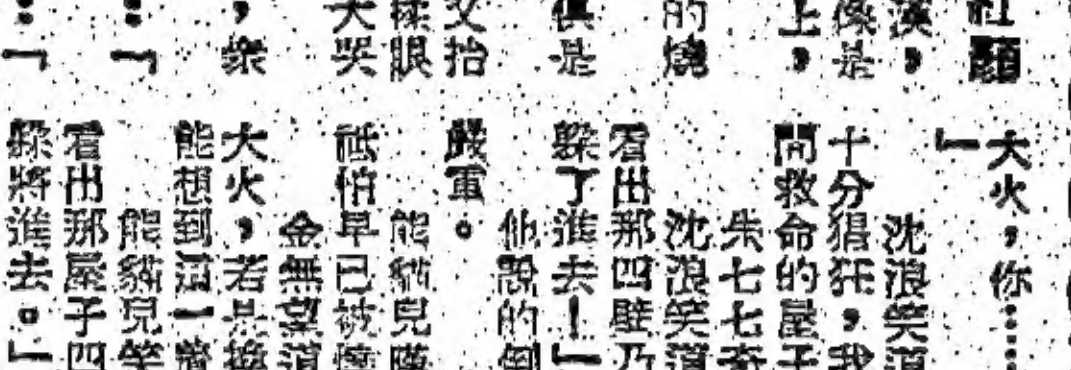 紅顏
漢，
像是
上，
的燒
俱是
文抬
揉眼
大哭
，衆
：「
：「
大火，你……
」
沈浪笑道
十分猖狂，我
間救命的屋子
朱七七奇
沈浪笑道
看出那四壁乃
躲了進去！」
他說的倒
嚴重。
熊貓兒嘆
祇怕早已被燒
金無望道
大火，若是換
能想到這一着
熊貓兒笑
看出那屋子四
躲將進去。」